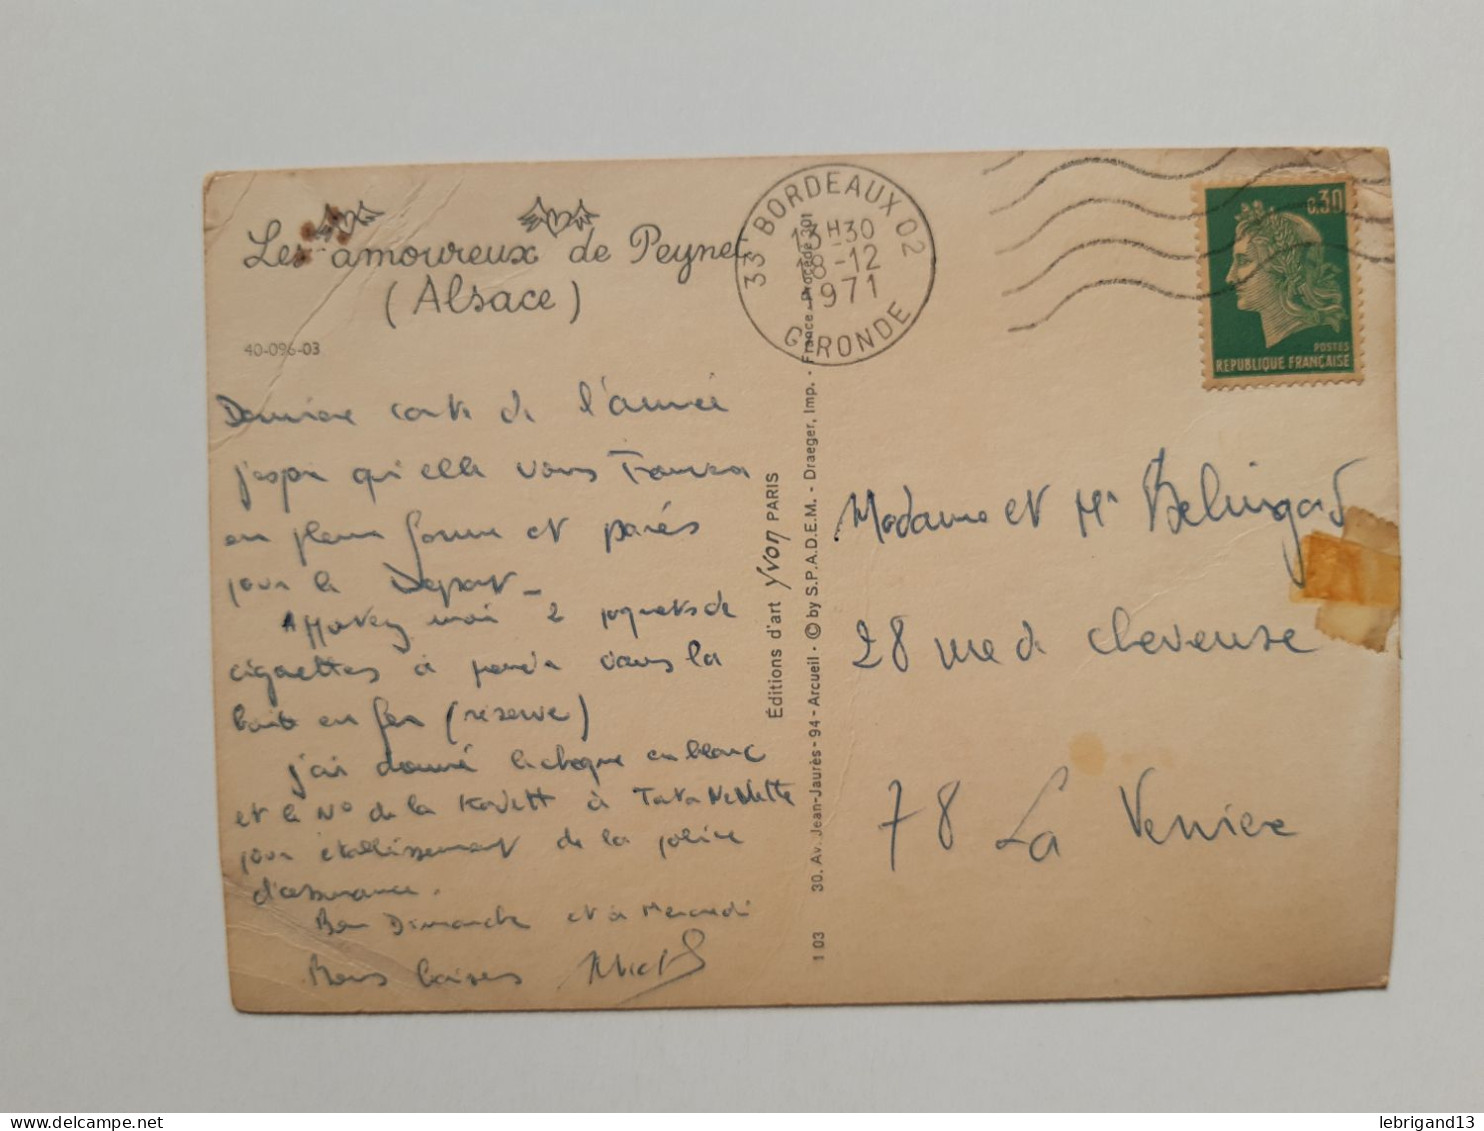 Les amoureux de Peynet
(Alsace)
40-096-03
Dernière carte de l'année
j'espère qu'elle vous trouvera
en pleine forme et parés
pour le Départ _
Apportez moi 2 paquets de
cigarettes à prendre dans la
boite en fer (réserve)
j'ai donné le chèque en blanc
et le N° de la Kadett à Tata
pour établissement de la police
d'assurance.
Bon Dimanche et à Mercredi
Bons baisers
Éditions d'art Yvon PARIS
1 03 30, Av. Jean-Jaurès - 94 - Arcueil - © by S.P.A.D.E.M. - Draeger, Imp. - France - Procédé 301
33 BORDEAUX 02
13H30
18-12
1971
GIRONDE
0,30
POSTES
REPUBLIQUE FRANÇAISE
Madame et Mr
28 rue de chevreuse
78 La Verrière
lebrigand13